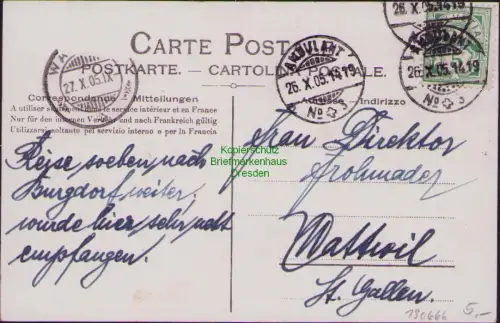 CARTE POSTALE
POSTKARTE. — CARTOLINA POSTALE.
Correspondance Mitteilungen
Adresse Indirizzo
A utiliser seulement dans le service intérieur et en France
Nur für den internen Verkehr und nach Frankreich gültig
Utilizzarsi soltanto pel servizio interno o per la Francia
27.X.05.IX
AMBULANT
26.X.05.1419
No 3
26.X.05.1419
AMBULANT
26.X.05.1419
No 3
Kopierschutz
Briefmarkenhaus
Dresden
Reise soeben nach
Burgdorf weiter,
wurde hier sehr nett
empfangen.
Frau Direktor
Frohmader
Wattwil
St. Gallen.
190666
5,-